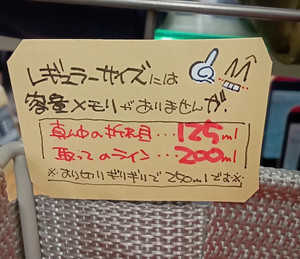 レギュラーサイズには
容量メモリがありませんが、
真ん中の折れ目…125ml
取ってのライン…200ml
※すり切りギリギリで250mlです※